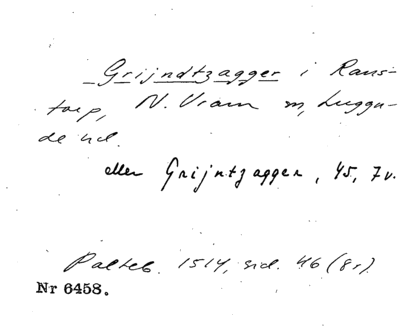 Grijndtzagger i Rans-
torp, N. Vram sn, Luggu-
de hd.
eller Grijntzagger, 45, 7v.
Palteb. 1514, sid. 46 (8r).
Nr 6458.